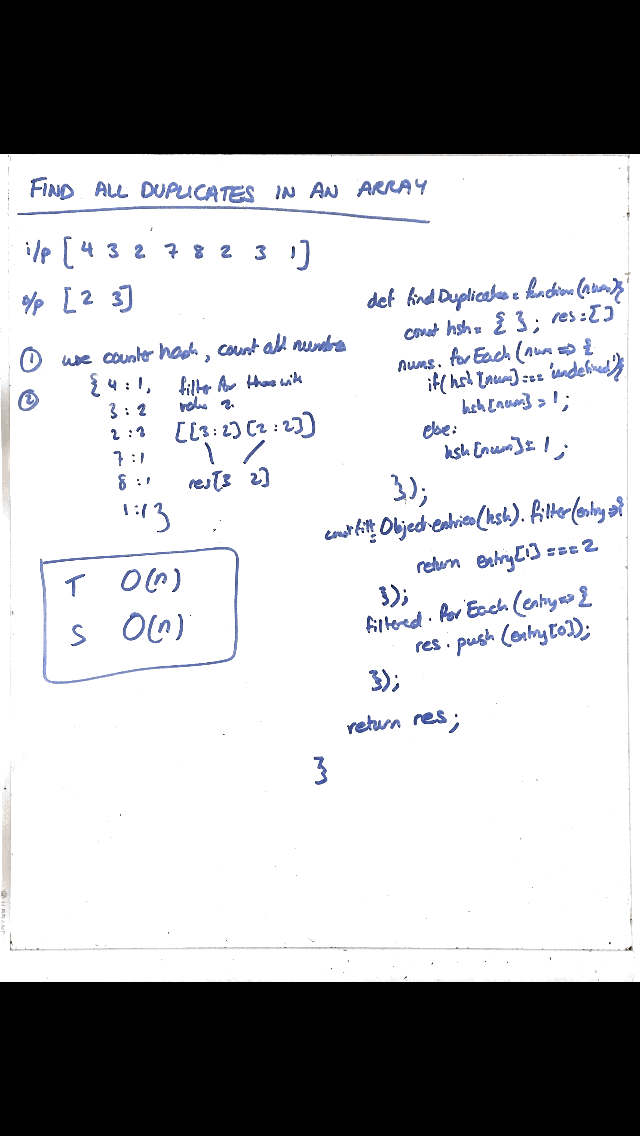 FIND ALL DUPLICATES IN AN ARRAY
i/p [ 4 3 2 7 8 2 3 1 ]
o/p [ 2 3 ]
① use counter hash, count all numbers
② { 4 : 1, filter for those with
3 : 2 value 2.
2 : 2 [[3:2] [2:2]]
7 : 1
8 : 1 res [3 2]
1 : 1 }
T O(n)
S O(n)
def findDuplicates = function(nums){
const hsh = { }; res = [ ]
nums.forEach(num => {
if(hsh[num] === 'undefined'){
hsh[num] = 1;
else:
hsh[num] += 1;
});
const filt = Object.entries(hsh).filter(entry => {
return entry[1] === 2
});
filtered.forEach(entry => {
res.push(entry[0]);
});
return res;
}